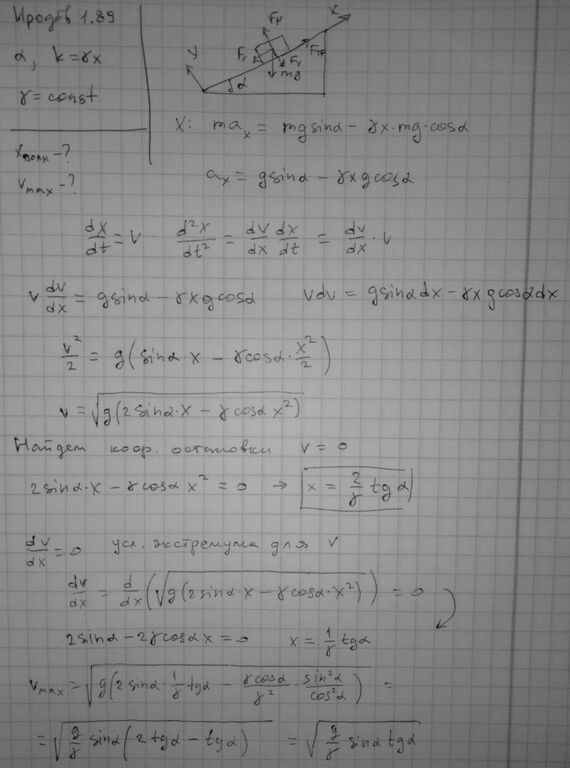 Иродов 1.89
α, k = γx
γ = const
v_max - ?
X: ma_x = mg sinα - γx·mg·cosα
a_x = g sinα - γxg cosα
dx/dt = v d²x/dt² = dv/dx dx/dt = dv/dx · v
v dv/dx = g sinα - γxg cosα vdv = g sinα dx - γxg cosα dx
v²/2 = g(sinα·x - γcosα·x²/2)
v = √(g(2sinα·x - γcosα x²))
Найдем коор. остановки v = 0
2sinα·x - γcosα x² = 0 → x = 2/γ tgα
dv/dx = 0 усл. экстремума для v
dv/dx = d/dx(√(g(2sinα·x - γcosα·x²))) = 0
2sinα - 2γcosα x = 0 x = 1/γ tgα
v_max = √(g(2sinα·1/γ tgα - γcosα/γ² · sin²α/cos²α)) =
= √(g/γ sinα(2tgα - tgα)) = √(g/γ sinα tgα)